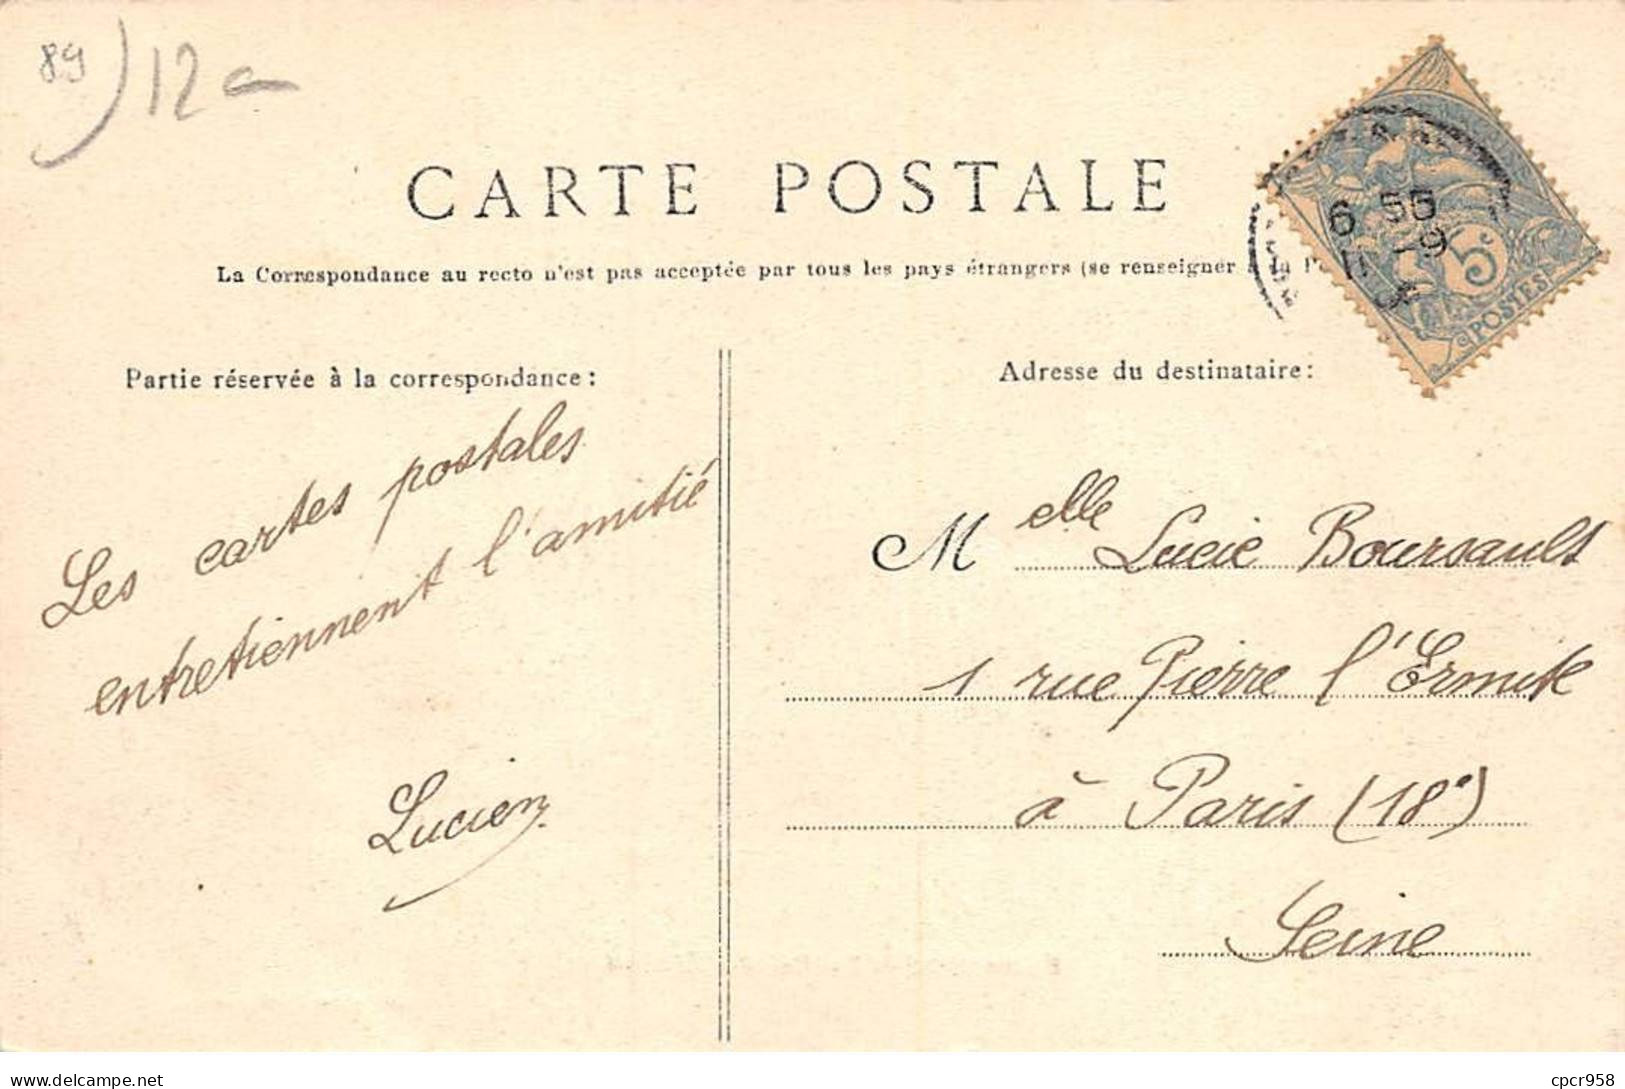 89
12
CARTE POSTALE
La Correspondance au recto n'est pas acceptée par tous les pays étrangers (se renseigner à la
6 55
-9
5c
POSTES
Partie réservée à la correspondance :
Les cartes postales
entretiennent l'amitié
Lucien
Adresse du destinataire :
Melle Lucie Boursault
1 rue Pierre l'Ermite
à Paris (18e)
Seine
delcampe.net
cpcr958